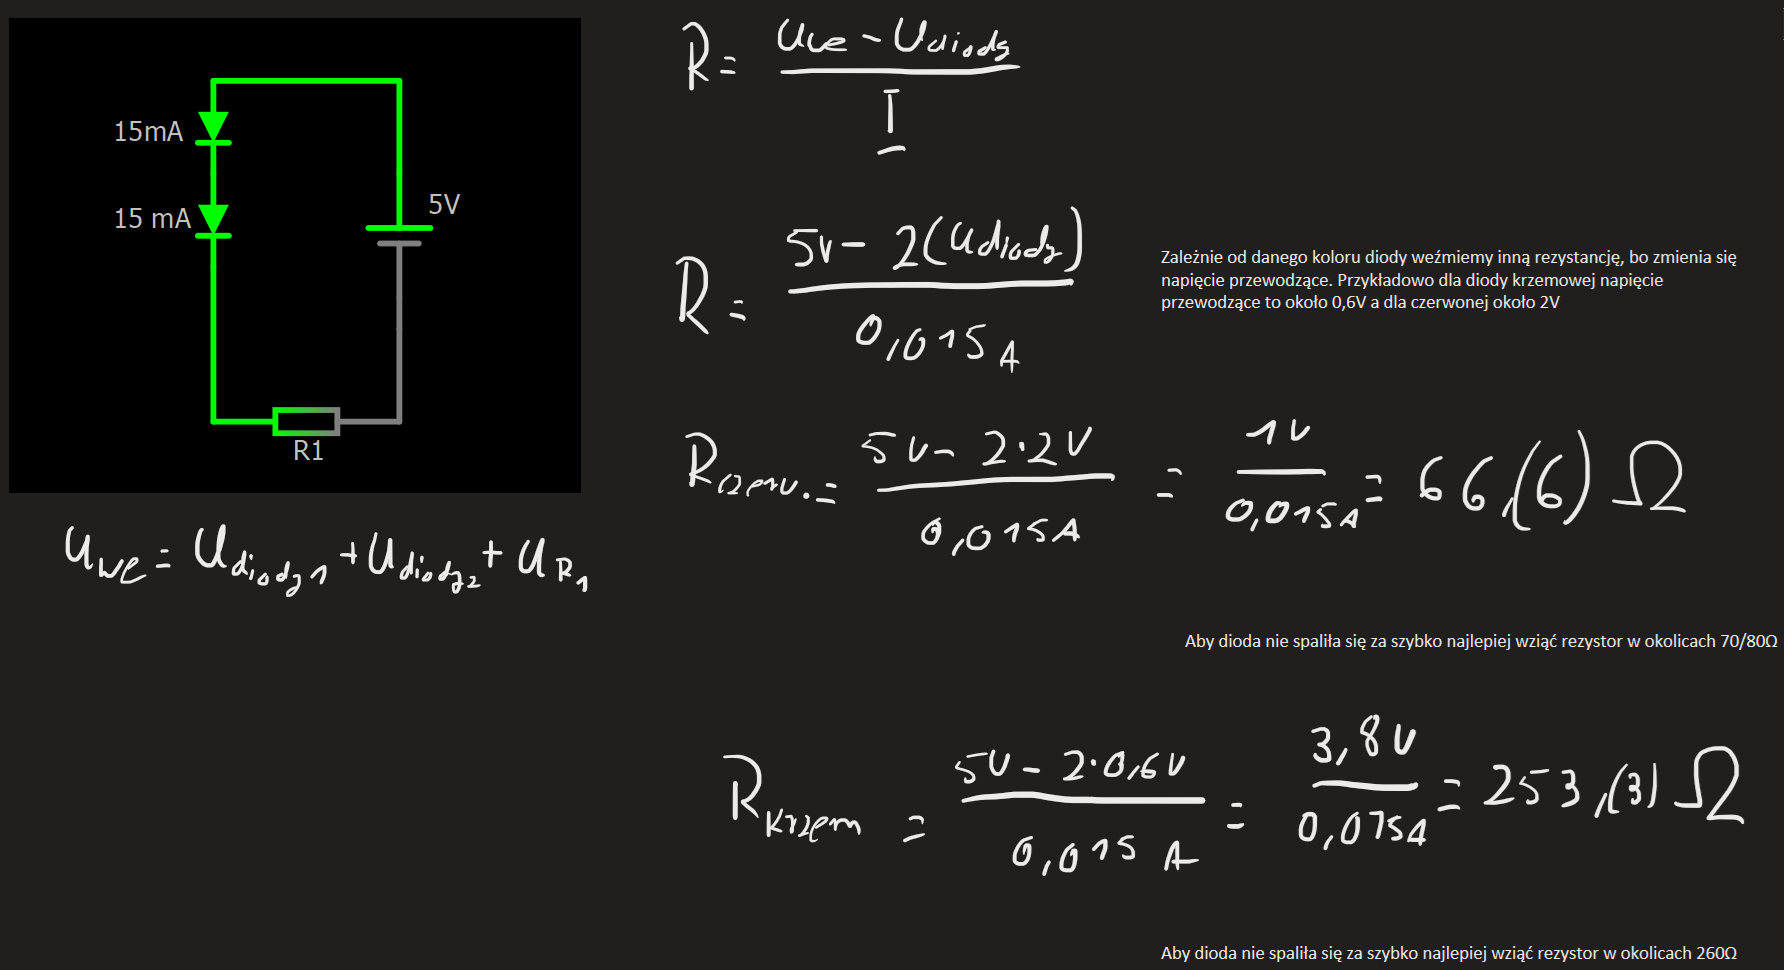 15mA
15 mA
5V
R1
Uwe = Udiody1 + Udiody2 + UR1
R = Uwe - Udiody / I
R = 5V - 2(Udiody) / 0,015A
Zależnie od danego koloru diody weźmiemy inną rezystancję, bo zmienia się
napięcie przewodzące. Przykładowo dla diody krzemowej napięcie
przewodzące to około 0,6V a dla czerwonej około 2V
Rczerw. = 5V - 2·2V / 0,015A = 1V / 0,015A = 66,(6) Ω
Aby dioda nie spaliła się za szybko najlepiej wziąć rezystor w okolicach 70/80Ω
Rkrzem = 5V - 2·0,6V / 0,015A = 3,8V / 0,015A = 253,(3) Ω
Aby dioda nie spaliła się za szybko najlepiej wziąć rezystor w okolicach 260Ω